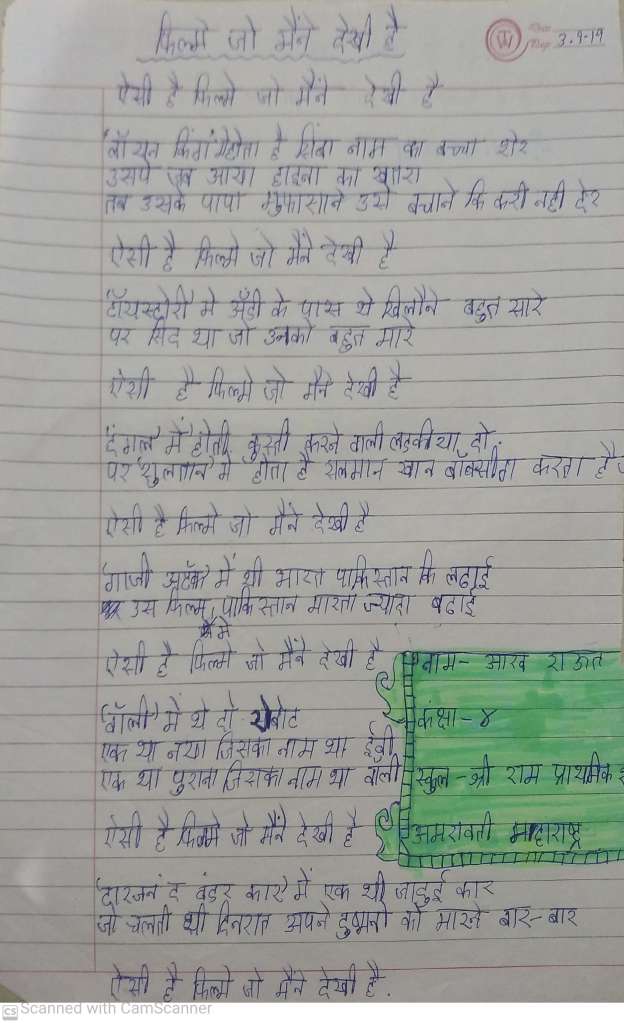 फिल्मे जो मैंने देखी है
3.9-19
ऐसी है फिल्मे जो मैंने देखी है
होता है सिंबा नाम का बच्चा शेर
उसपे जब आया हाइना का खतरा
तब उसके पापा मुफासाने उसे बचाने कि करी नही देर
ऐसी है फिल्मे जो मैंने देखी है
'टॉयस्टोरी' मे अँडी के पास थे खिलौने बहुत सारे
पर सिद था जो उनको बहुत मारे
ऐसी है फिल्मे जो मैने देखी है
'दंगल' में होती कुस्ती करने वाली लडकीया दो
पर 'सुलतान' मे होता है सलमान खान बॉक्सींग करता है
ऐसी है फिल्मे जो मैंने देखी है
'गाजी अटॅक' में थी भारत पाकिस्तान कि लढाई
उस फिल्म मे पाकिस्तान मारता ज्यादा बढाई
ऐसी है फिल्मे जो मैंने देखी है
'वॉली' में थे दो रोबोट
एक था नया जिसका नाम था ईवी
एक था पुराना जिसका नाम था वाली
ऐसी है फिल्मे जो मैंने देखी है
नाम- आरव राऊत
कक्षा - ४
स्कुल - श्री राम प्राथमिक
अमरावती महाराष्ट्र
'टारजन द वंडर कार' में एक थी जादुई कार
जो चलती थी दिनरात अपने दुष्मनो को मारने बार-बार
ऐसी है फिल्मे जो मैंने देखी है.
CS Scanned with CamScanner